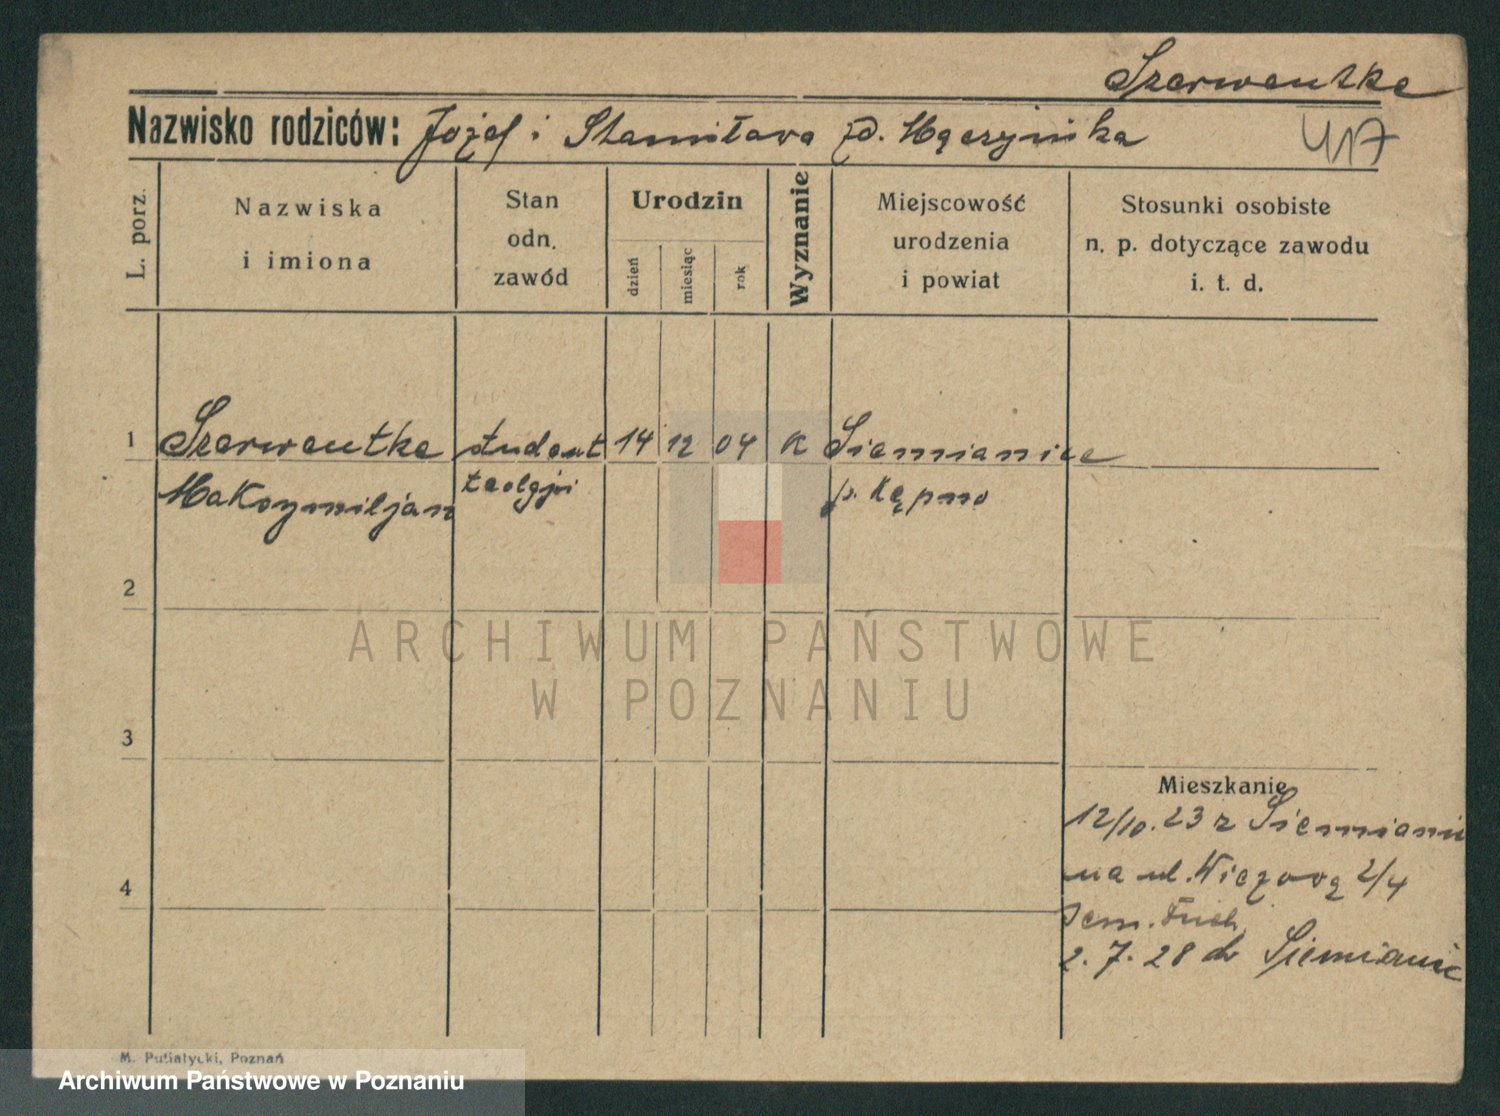 Szerwentke
Nazwisko rodziców: Józef i Stanisława zd. Męczyńska
417
L. porz.
Nazwiska
i imiona
Stan
odn.
zawód
Urodzin
dzień
miesiąc
rok
Wyznanie
Miejscowość
urodzenia
i powiat
Stosunki osobiste
n. p. dotyczące zawodu
i. t. d.
1 Szerwentke student 14 12 04 K Siemianice
Maksymiljan teolgji p. Kępno
2
3
4
Mieszkanie
12/10.23 z Siemianic
na ul. Wieżową 2/4
Sem. Duch.
2.7.28 do Siemianic
M. Putiatycki, Poznań
ARCHIWUM PAŃSTWOWE
W POZNANIU
Archiwum Państwowe w Poznaniu